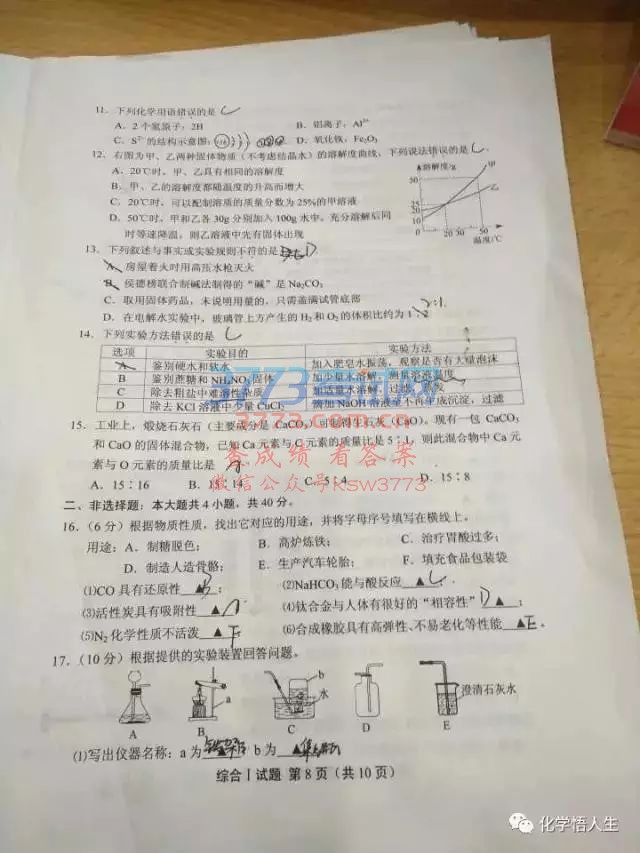 11. 下列化学用语错误的是
A. 2个氢原子: 2H B. 铝离子: Al³⁺
C. S²⁻的结构示意图: D. 氧化铁: Fe₂O₃
12. 右图为甲、乙两种固体物质(不考虑结晶水)的溶解度曲线, 下列说法错误的是
A. 20℃时, 甲、乙具有相同的溶解度
B. 甲、乙的溶解度都随温度的升高而增大
C. 20℃时, 可以配制溶质的质量分数为25%的甲溶液
D. 50℃时, 甲和乙各30g分别加入100g水中, 充分溶解后同
时等速降温, 则乙溶液中先有固体出现
溶解度/g
甲
乙
50
25
20
0 20 30 50
温度/℃
13. 下列叙述与事实或实验规则不符的是 D
A. 房屋着火时用高压水枪灭火
B. 侯德榜联合制碱法制得的“碱”是Na₂CO₃
C. 取用固体药品, 未说明用量的, 只需盖满试管底部
D. 在电解水实验中, 玻璃管上方产生的H₂和O₂的体积比约为1:2
2:1
14. 下列实验方法错误的是
选项 实验目的 实验方法
A 鉴别硬水和软水 加入肥皂水振荡, 观察是否有大量泡沫
B 鉴别蔗糖和NH₄NO₃固体 加少量水溶解, 测量溶液温度
C 除去粗盐中难溶性杂质 加适量水溶解, 过滤, 蒸发
D 除去KCl溶液中少量CuCl₂ 滴加NaOH溶液至不再生成沉淀, 过滤
15. 工业上, 煅烧石灰石(主要成分是CaCO₃)可制得生石灰(CaO)。现有一包CaCO₃
和CaO的固体混合物, 已知Ca元素与C元素的质量比是5:1, 则此混合物中Ca元
素与O元素的质量比是
A. 15:16 B. 15:14 C. 5:4 D. 15:8
773考试网
773.com.cn
查成绩 看答案
微信公众号ksw3773
二、非选择题: 本大题共4小题, 共40分。
16. (6分)根据物质性质, 找出它对应的用途, 并将字母序号填写在横线上。
用途: A. 制糖脱色; B. 高炉炼铁; C. 治疗胃酸过多;
D. 制造人造骨骼; E. 生产汽车轮胎; F. 填充食品包装袋
(1)CO具有还原性 ▲ B; (2)NaHCO₃能与酸反应 ▲ C.
(3)活性炭具有吸附性 ▲ A (4)钛合金与人体有很好的“相容性” D ▲;
(5)N₂化学性质不活泼 ▲ F (6)合成橡胶具有高弹性、不易老化等性能 ▲E.
17. (10分)根据提供的实验装置回答问题。
a
b
水
澄清石灰水
A B C D E
(1)写出仪器名称: a为 ▲ b为 ▲
综合Ⅰ试题 第8页(共10页)
化学悟人生